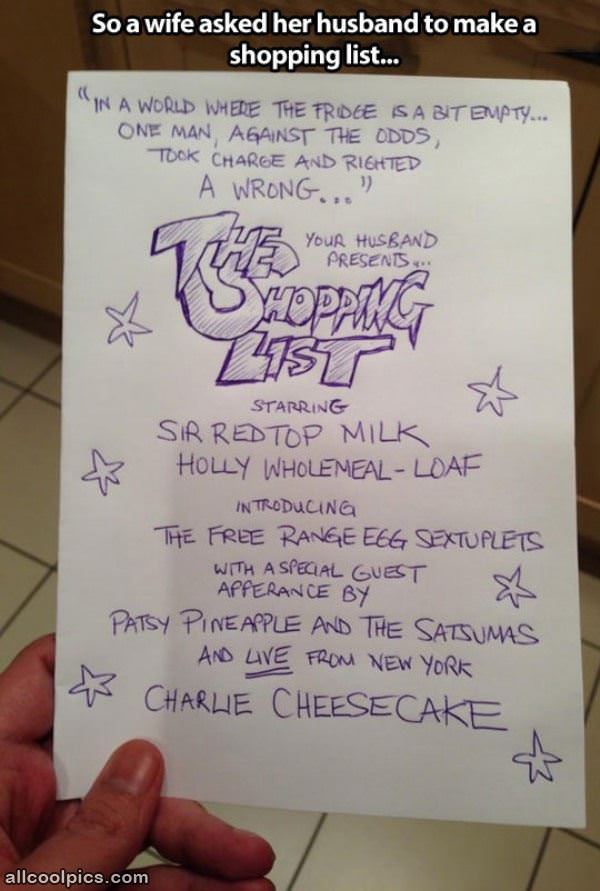 So a wife asked her husband to make a
shopping list...
"IN A WORLD WHERE THE FRIDGE IS A BIT EMPTY...
ONE MAN, AGAINST THE ODDS,
TOOK CHARGE AND RIGHTED
A WRONG..."
YOUR HUSBAND
PRESENTS...
THE
SHOPPING
LIST
STARRING
SIR RED TOP MILK
HOLLY WHOLEMEAL-LOAF
INTRODUCING
THE FREE RANGE EGG SEXTUPLETS
WITH A SPECIAL GUEST
APPERANCE BY
PATSY PINEAPPLE AND THE SATSUMAS
AND LIVE FROM NEW YORK
CHARLIE CHEESECAKE
allcoolpics.com